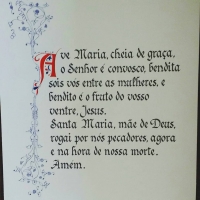 Ave Maria, cheia de graça,
o Senhor é convosco, bendita
sois vós entre as mulheres, e
bendito é o fruto do vosso
ventre, Jesus.
Santa Maria, mãe de Deus,
rogai por nós pecadores, agora
e na hora de nossa morte.
Amém.